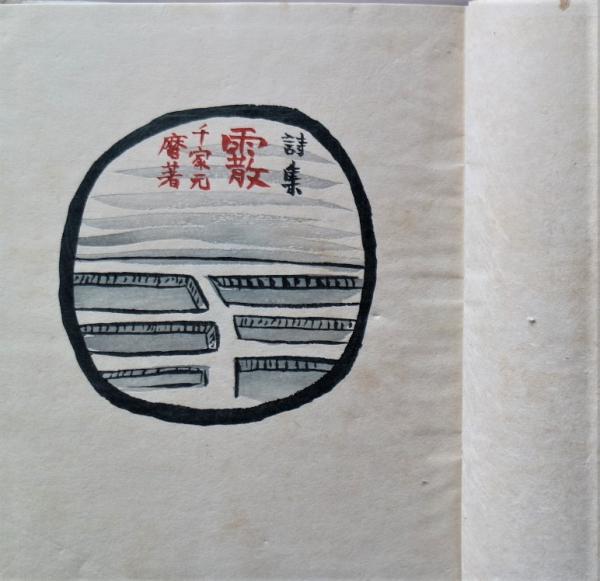 詩集
霰
千家元
麿著